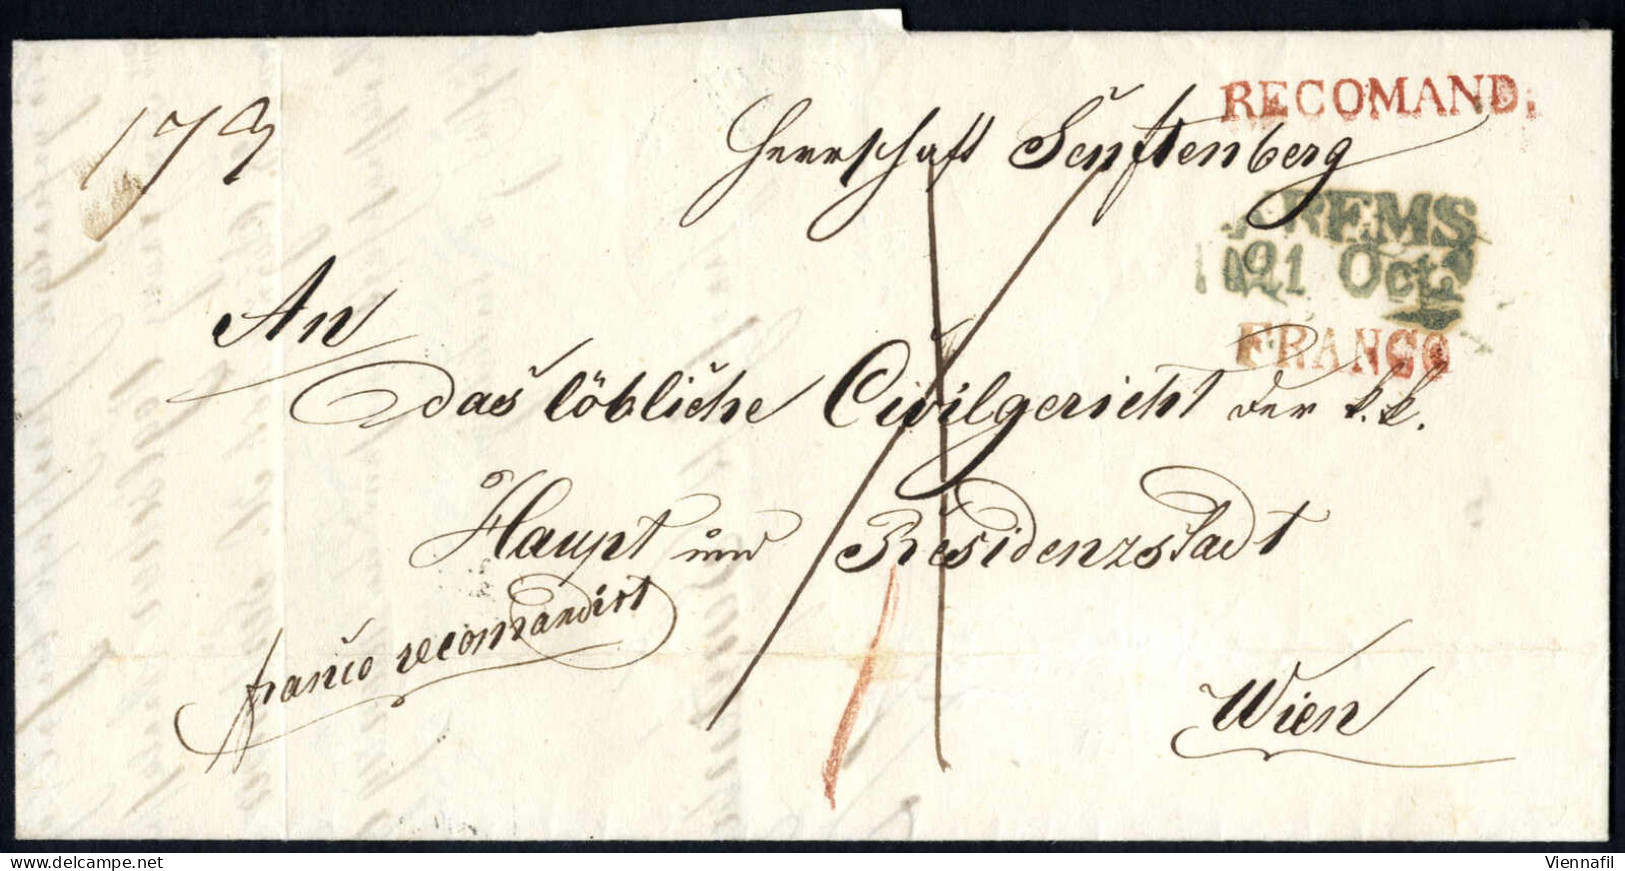 RECOMAND.
173
Herrschaft Senftenberg
KREMS
21 Oct
FRANCO
An
das löbliche Civilgericht der k.k.
Haupt und Residenzstadt
franco recomandirt
Wien
www.delcampe.net
Viennafil